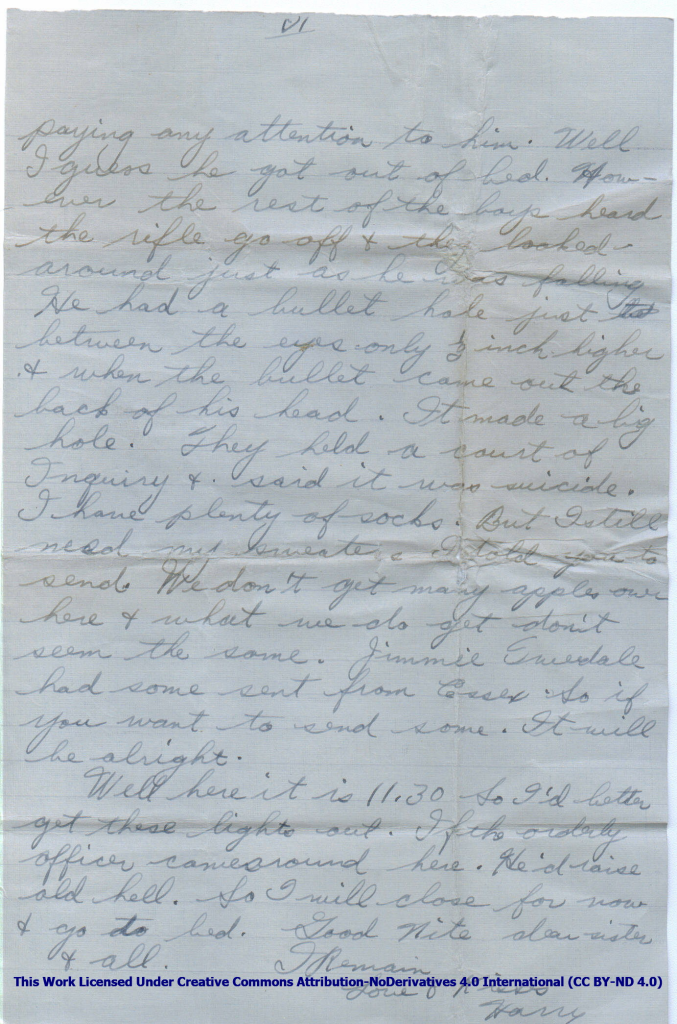 VI
paying any attention to him. Well
I guess he got out of bed. How-
ever the rest of the boys heard
the rifle go off & they looked
around just as he was falling
He had a bullet hole just
between the eyes only ½ inch higher
& when the bullet came out the
back of his head. It made a big
hole. They held a court of
Inquiry & said it was suicide.
I have plenty of socks. But I still
need my sweater I told you to
send. We don't get many apples over
here & what we do get don't
seem the same. Jimmie
had some sent from Essex. So if
you want to send some. It will
be alright.
Well here it is 11.30 So I'd better
get these lights out. If the orderly
officer came around here. He'd raise
old hell. So I will close for now
& go to bed. Good Nite dear sister
& all. I Remain
Love & Kisses
Harry
This Work Licensed Under Creative Commons Attribution-NoDerivatives 4.0 International (CC BY-ND 4.0)